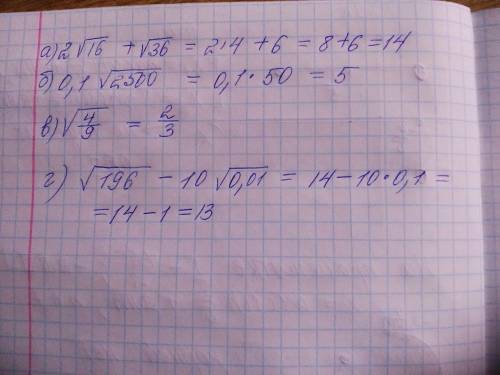 а) 2√16 + √36 = 2·4 + 6 = 8+6 = 14
б) 0,1 √2500 = 0,1·50 = 5
в) √4/9 = 2/3
г) √196 − 10 √0,01 = 14 − 10·0,1 =
= 14 − 1 = 13